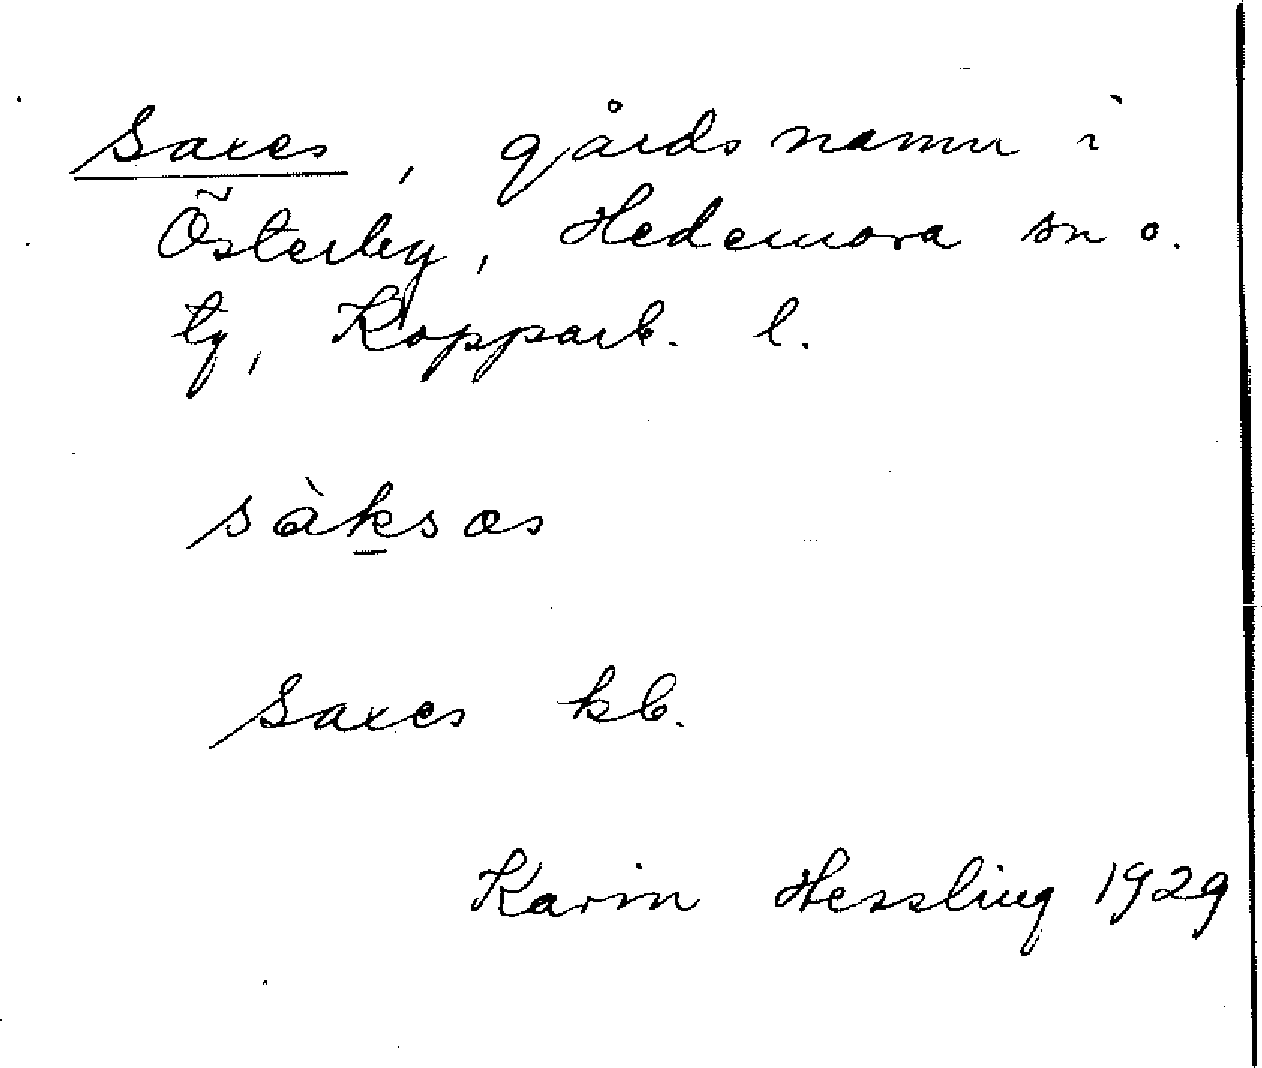 Saxes, gårdsnamn i
Österby, Hedemora sn o.
tg, Kopparb. l.
sàksæs
Saxes kb.
Karin Hessling 1929